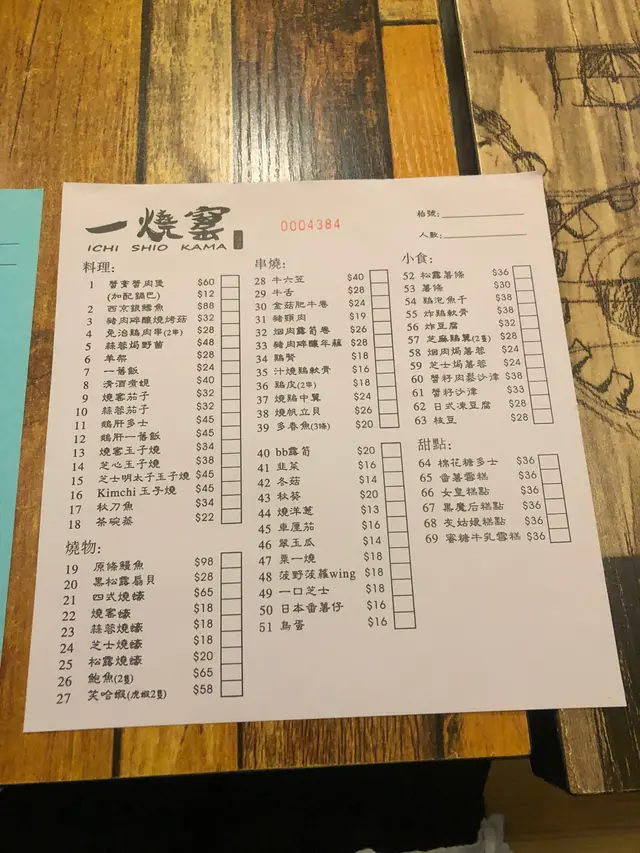 一燒窰
ICHI SHIO KAMA
0004384
枱號:
人數:
料理:
1 蟹黃蟹肉煲 $60
(加配鍋巴) $12
2 西京銀鱈魚 $88
3 豬肉碎釀燒烤菇 $32
4 免治鷄肉串(2串) $28
5 蒜蓉焗野菌 $48
6 羊架 $28
7 一番飯 $24
8 清酒煮蜆 $40
9 燒窰茄子 $32
10 蒜蓉茄子 $32
11 鵝肝多士 $45
12 鵝肝一番飯 $45
13 燒窰玉子燒 $34
14 芝心玉子燒 $38
15 芝士明太子玉子燒 $45
16 Kimchi 玉子燒 $45
17 秋刀魚 $34
18 茶碗蒸 $22
燒物:
19 原條鰻魚 $98
20 黑松露扇貝 $28
21 四式燒蠔 $65
22 燒窰蠔 $18
23 蒜蓉燒蠔 $18
24 芝士燒蠔 $18
25 松露燒蠔 $20
26 鮑魚(2隻) $65
27 芙哈蝦(虎蝦2隻) $58
串燒:
28 牛六笠 $40
29 牛舌 $28
30 金菇肥牛卷 $24
31 豬頸肉 $19
32 烟肉露筍卷 $26
33 豬肉碎釀年蘿 $28
34 鷄腎 $18
35 汁燒鷄軟骨 $16
36 鷄皮(2串) $18
37 燒鷄中翼 $24
38 燒帆立貝 $26
39 多春魚(3條) $20
40 bb露筍 $20
41 韭菜 $16
42 冬菇 $14
43 秋葵 $20
44 燒洋蔥 $13
45 車厘茄 $16
46 翠玉瓜 $14
47 粟一燒 $18
48 菠野菠蘿wing $18
49 一口芝士 $18
50 日本番薯仔 $16
51 鳥蛋 $16
小食:
52 松露薯條 $36
53 薯條 $30
54 鷄泡魚干 $38
55 炸鷄軟骨 $38
56 炸豆腐 $32
57 芝麻鷄翼(2隻) $28
58 烟肉焗薯蓉 $24
59 芝士焗薯蓉 $24
60 蟹籽肉鬆沙津 $38
61 蟹籽沙津 $33
62 日式凍豆腐 $28
63 枝豆 $28
甜點:
64 棉花糖多士 $36
65 番薯雪糕 $36
66 女皇糕點 $36
67 黑魔后糕點 $36
68 灰姑娘糕點 $36
69 蜜糖牛乳雪糕 $36